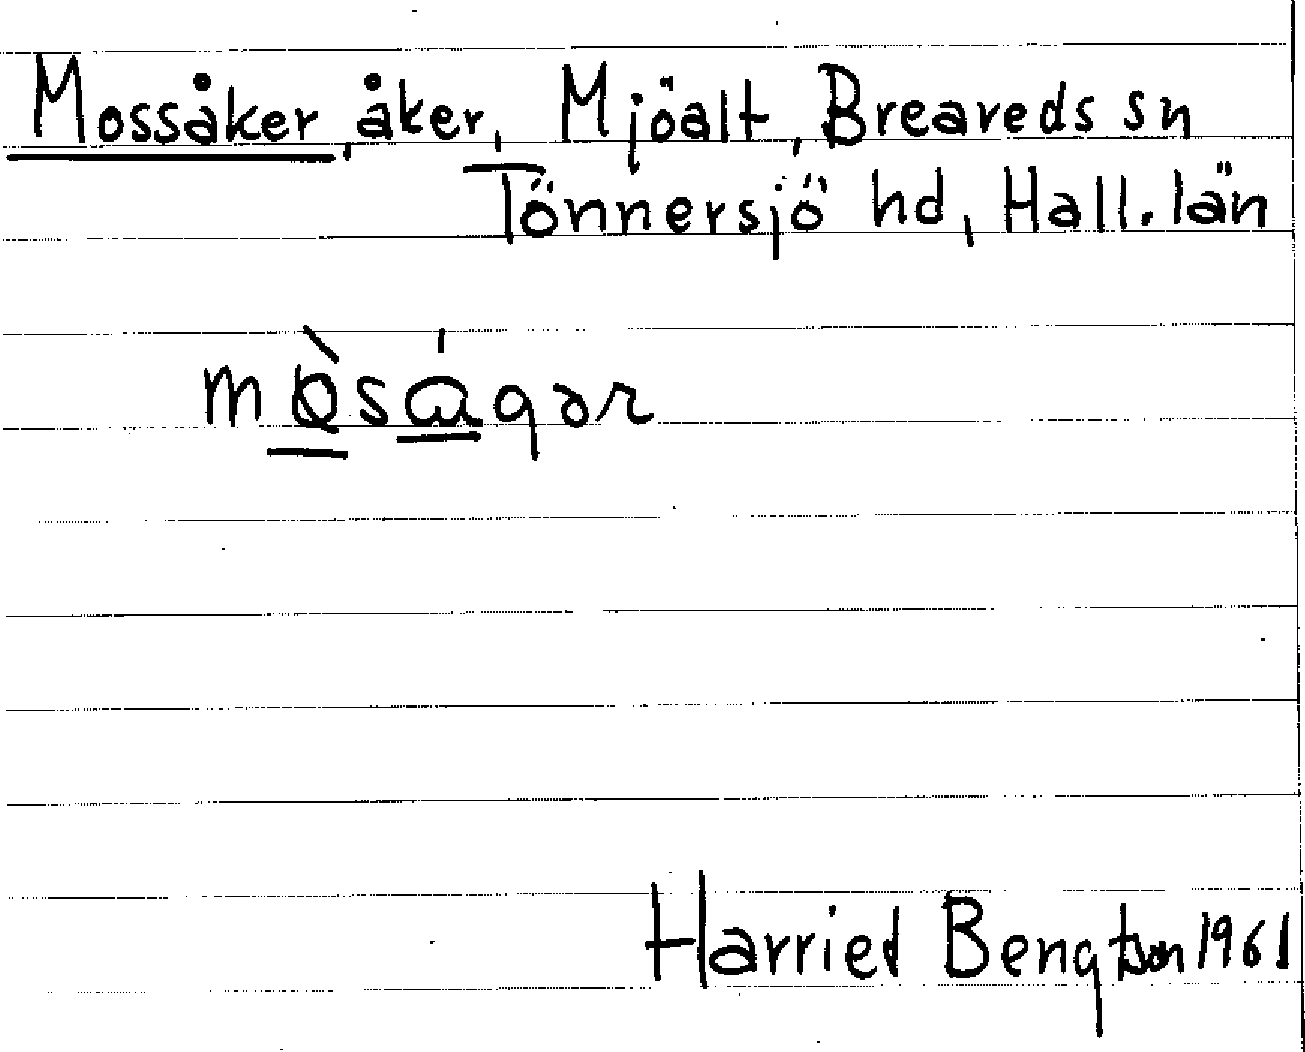 Mossåker, åker, Mjöalt, Breareds sn
Tönnersjö hd, Hall. län
Harriet Bengtson 1961